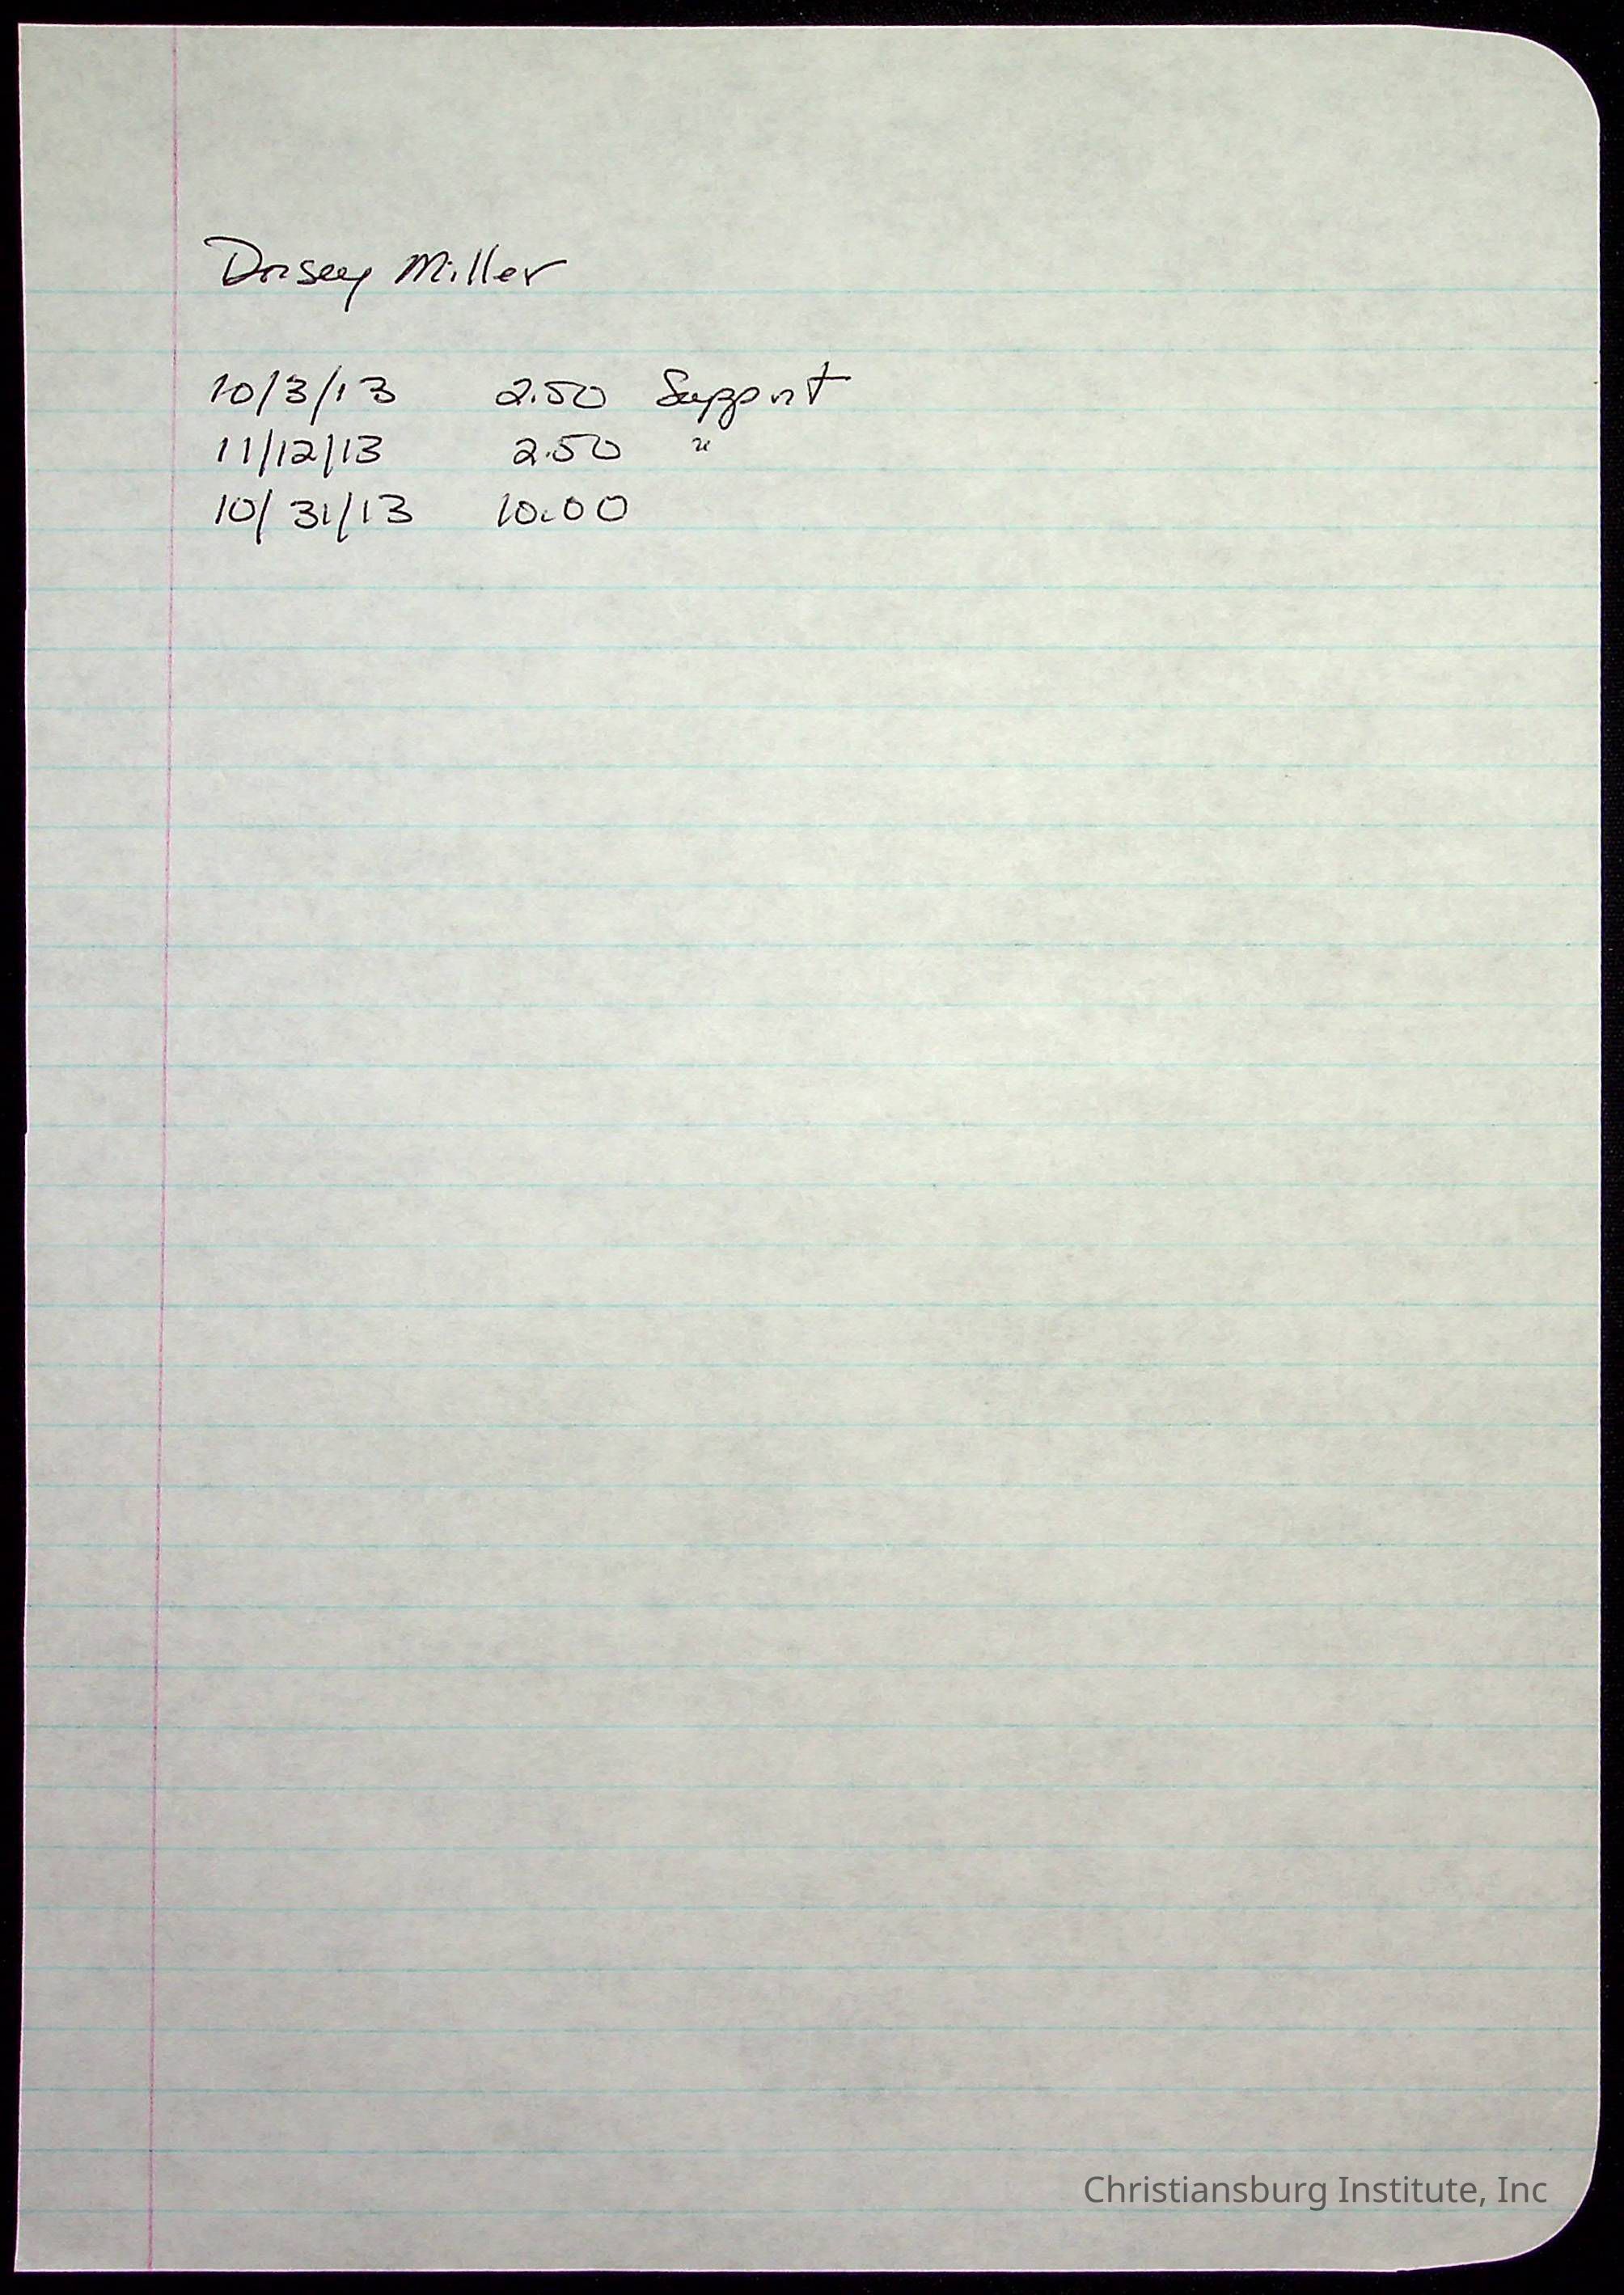 Dorsey Miller
10/3/13 2.50 Support
11/12/13 2.50 "
10/31/13 10.00
Christiansburg Institute, Inc